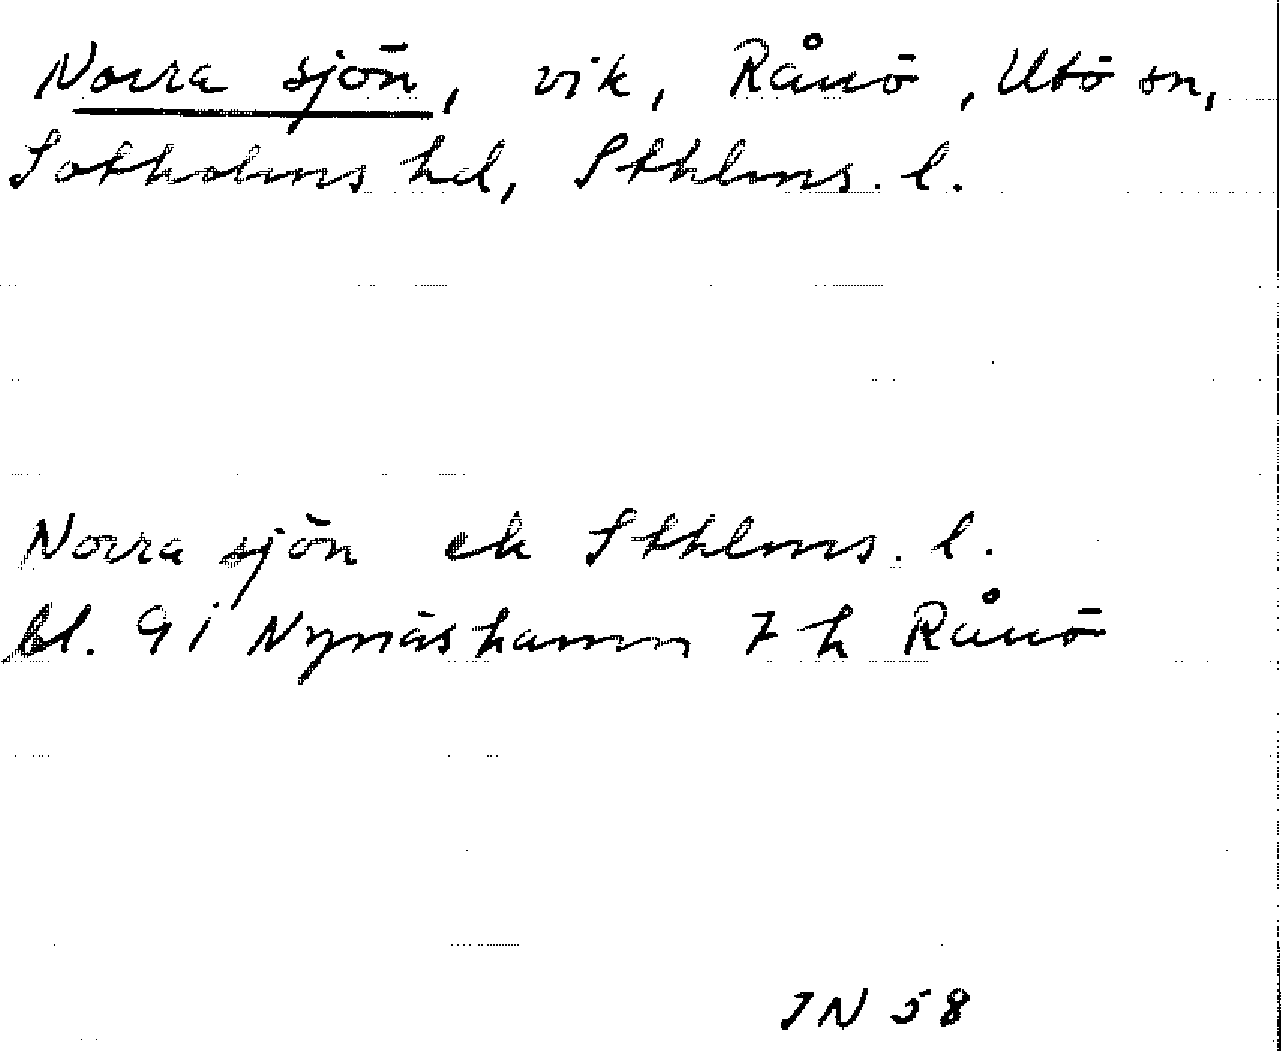 Norra sjön, vik, Rånö, Utö sn,
Sotholms hd, Sthlms. l.
Norra sjön ek Sthlms. l.
bl. 9 i Nynäshamn 7 h Rånö
JN 58